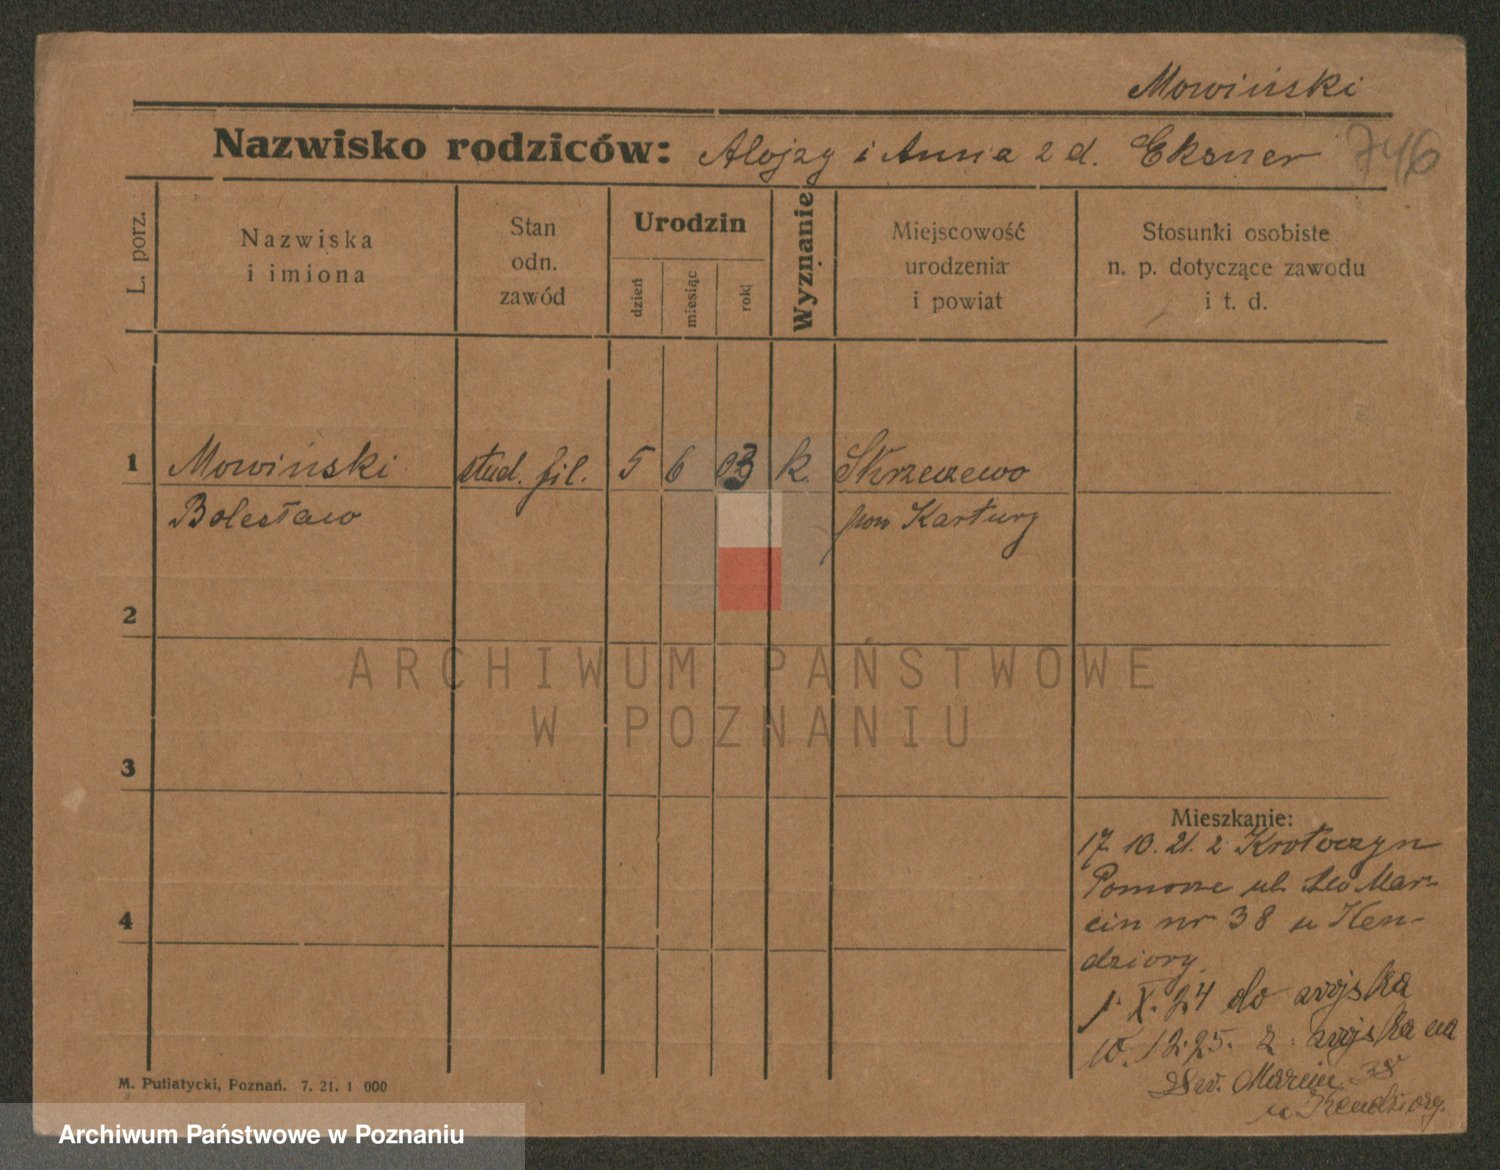 Mowiński
Nazwisko rodziców: Alojzy i Anna z d. Eksner 746
L. porz.
Nazwiska
i imiona
Stan
odn.
zawód
Urodzin
dzień
miesiąc
rok
Wyznanie
Miejscowość
urodzenia
i powiat
Stosunki osobiste
n. p. dotyczące zawodu
i t. d.
1 Mowiński stud. fil. 5 6 03 k. Skrzeszewo
Bolesław pow Kartuzy
2
ARCHIWUM PAŃSTWOWE
W POZNANIU
3
Mieszkanie:
17. 10. 21. z Krotoczyn
Pomorze ul. Św Mar-
cin nr 38 u Ken-
dziory.
4
1. X. 24 do wojska
10. 12. 25. z wojska na
Św. Marcin 38
u Kendziory.
M. Putiatycki, Poznań. 7. 21. 1 000
Archiwum Państwowe w Poznaniu